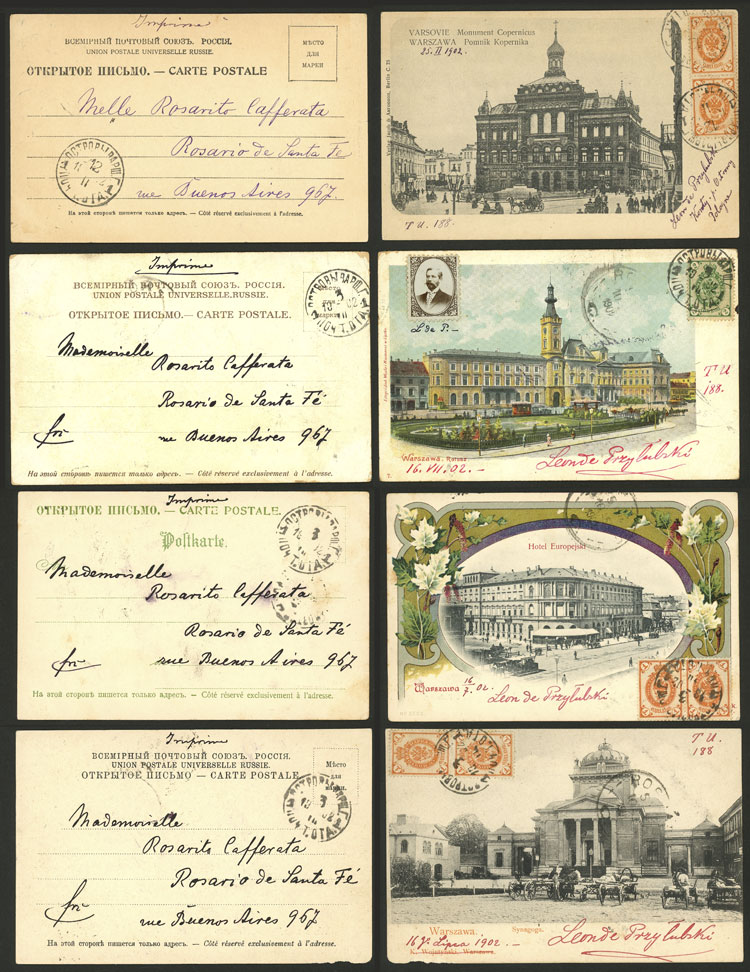 Imprimé
ВСЕМІРНЫЙ ПОЧТОВЫЙ СОЮЗЪ. РОССІЯ.
UNION POSTALE UNIVERSELLE RUSSIE.
ОТКРЫТОЕ ПИСЬМО. — CARTE POSTALE
МѢСТО
ДЛЯ
МАРКИ
Melle Rosarito Cafferata
Rosario de Santa Fe
rue Buenos Aires 967.
На этой сторонѣ пишется только адресъ. — Côté réservé exclusivement à l'adresse.
VARSOVIE Monument Copernicus
WARSZAWA Pomnik Kopernika
25. II 1902.
T. U. 188.
Leon de Przyłubski
Imprimé
ВСЕМІРНЫЙ ПОЧТОВЫЙ СОЮЗЪ. РОССІЯ.
UNION POSTALE UNIVERSELLE.RUSSIE.
ОТКРЫТОЕ ПИСЬМО. — CARTE POSTALE.
Mademoiselle
Rosarito Cafferata
Rosario de Santa Fé
rue Buenos Aires 967
На этой сторонѣ пишется только адресъ. — Côté réservé exclusivement à l'adresse.
L de P. —
T U
188.
Warszawa. Ratusz
16. VII. 02. —
Leon de Przyłubski
Imprimé
ОТКРЫТОЕ ПИСЬМО. — CARTE POSTALE.
Postkarte.
Mademoiselle
Rosarito Cafferata
Rosario de Santa Fé
rue Buenos Aires 967
На этой сторонѣ пишется только адресъ. — Côté réservé exclusivement à l'adresse.
Hotel Europejski
Warszawa 16/7. 02.
Leon de Przyłubski
Imprimé
ВСЕМІРНЫЙ ПОЧТОВЫЙ СОЮЗЪ. РОССІЯ.
UNION POSTALE UNIVERSELLE RUSSIE.
ОТКРЫТОЕ ПИСЬМО — CARTE POSTALE
Мѣсто
для
марки.
Mademoiselle
Rosarito Cafferata
Rosario de Santa Fé
rue Buenos Aires 967
На этой сторонѣ пишется только адресъ. — Côté réservé exclusivement à l'adresse.
T. U.
188
Warszawa.
Synagoga.
Lipca 1902. —
Leon de Przyłubski
K. Wojutyński, Warszawa.